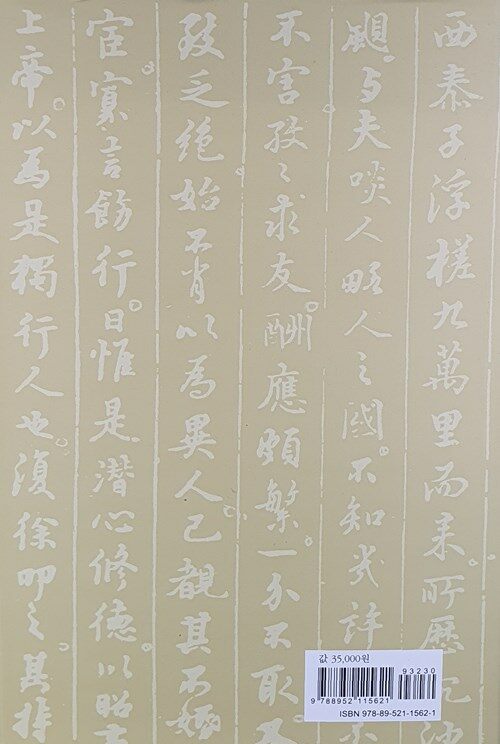 西泰子浮槎九萬里而来所歷沙
颶与夫啖人略人之國不知幾許
不害孜々求友酬應頗繁一介不取又
致乏絶始不肖以為異人已覩其不婚
宦寡言飭行日惟是潛心修德以昭事
上帝以為是獨行人也復徐叩之其持
값 35,000원
93230
9 788952 115621
ISBN 978-89-521-1562-1